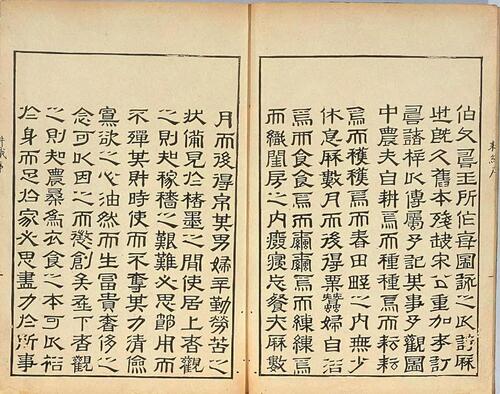 伯父壽玉所作圖詠之以詩厤
世既久舊本殘缺宋公重加考訂
壽諸梓以傳屬予記其事予觀圖
中農夫自耕焉而種種焉而耘耘
焉而穫穫焉而舂田畦之内無少
休息厤數月而後得粟蠶婦自浴
焉而食食焉而繭繭焉而練練焉
而織閨房之内廢寢忘餐夫厤數
月而後得帛其男婦辛勤勞苦之
狀備見於楮墨之間使居上者觀
之則知稼穡之艱難必思節用而
不殫其財時使而不奪其力清儉
寡欲之心油然而生富貴奢侈之
念可以因之而懲創矣在下者觀
之則知農桑為衣食之本可以裕
於身而足於家必思盡力於所事